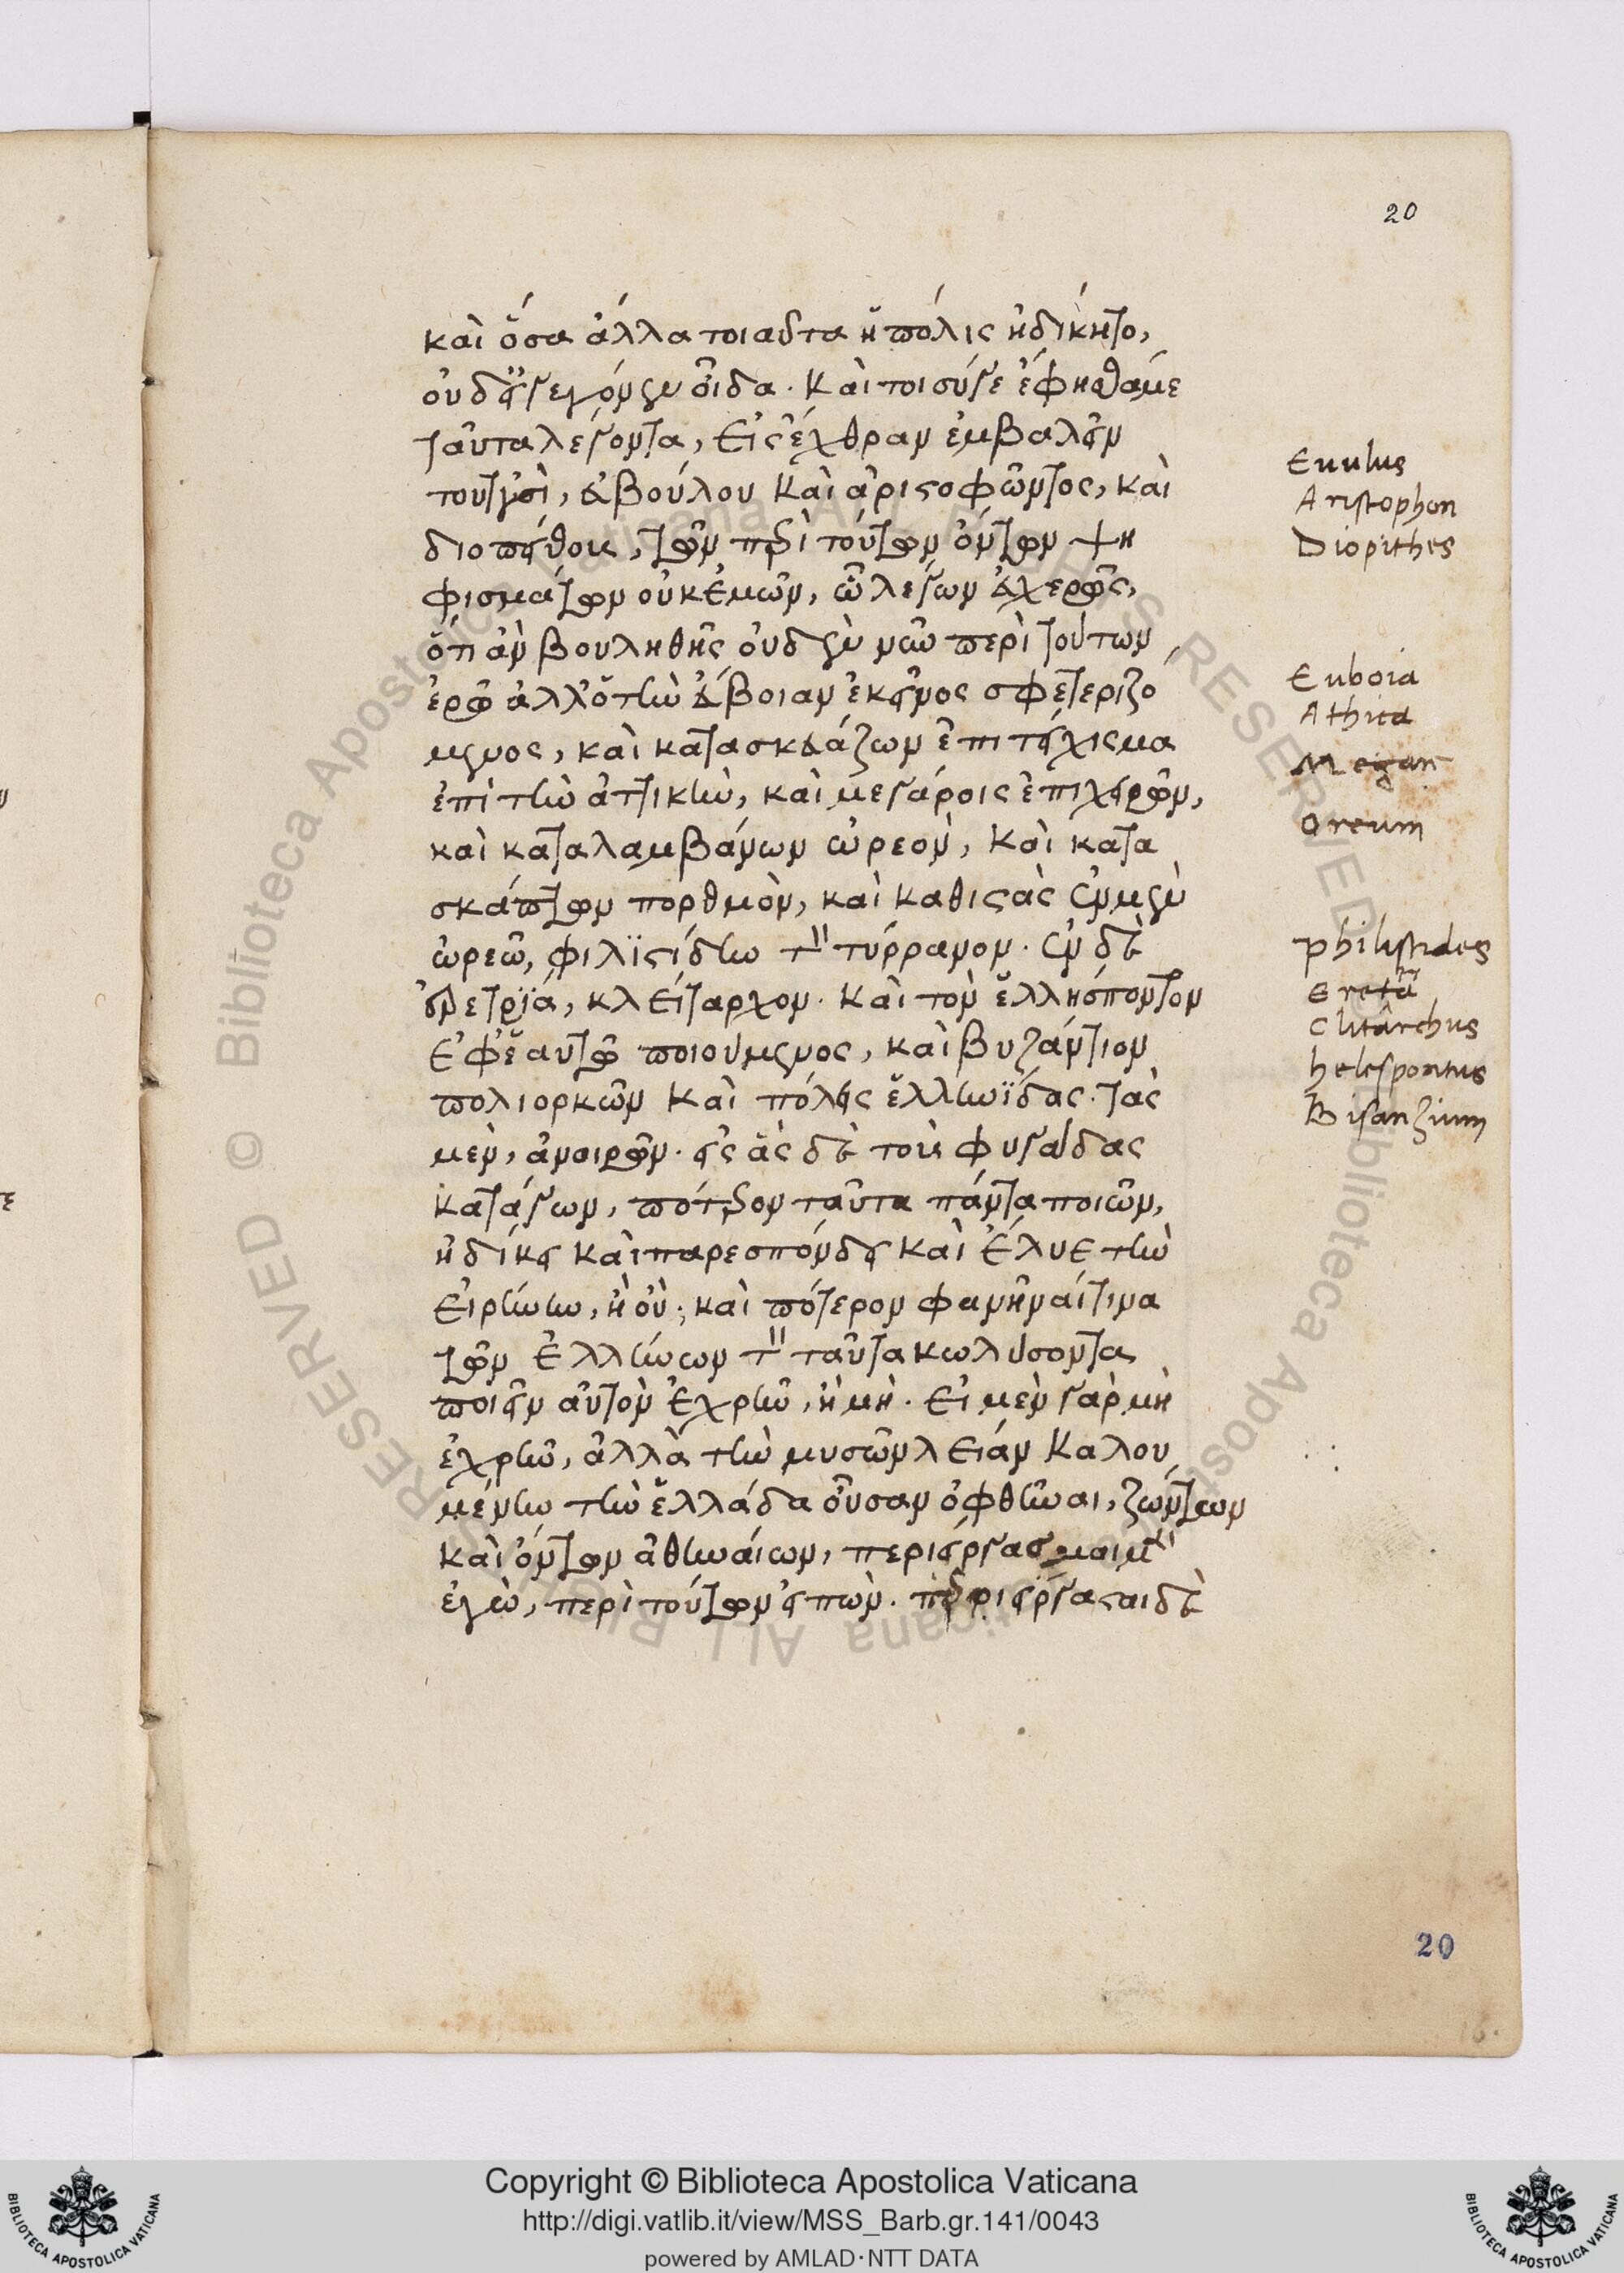 20
καὶ ὅσα ἄλλα τοιαῦτα ἡ πόλις ἠδίκητο,
οὐδὲ γεγονὸς οἶδα. Καίτοι σύγε ἔφησθα με
ταῦτα λέγοντα, εἰς ἔχθραν ἐμβαλεῖν
τουτοισὶ, εὐβούλου καὶ ἀριστοφῶντος, καὶ
διοπείθους, τῶν περὶ τούτων ὄντων ψη
φισμάτων οὐκ ἐμῶν, ὦ λέγων εὐχερῶς,
ὅτι ἂν βουληθῇς οὐδὲ νῦν περὶ τούτων
ἐρῶ ἀλλ' ὁ τὴν εὔβοιαν ἐκεῖνος σφετεριζό
μενος, καὶ κατασκευάζων ἐπιτείχισμα
ἐπὶ τὴν ἀττικὴν, καὶ μεγάροις ἐπιχειρῶν,
καὶ καταλαμβάνων ὠρεὸν, καὶ κατα
σκάπτων πορθμὸν, καὶ καθιστὰς ἐν μὲν
ὠρεῷ, φιλιστίδην τύρραννον. ἐν δὲ
ἐρετρίᾳ, κλείταρχον. καὶ τὸν ἑλλήσποντον
ἐφ' ἑαυτῷ ποιούμενος, καὶ βυζάντιον
πολιορκῶν καὶ πόλεις ἑλληνίδας. τὰς
μὲν, ἀναιρῶν. εἰς ἃς δὲ τοὺς φυγάδας
κατάγων, πότερον ταῦτα πάντα ποιῶν,
ἠδίκει καὶ παρεσπόνδει καὶ ἔλυε τὴν
εἰρήνην, ἢ οὔ; καὶ πότερον φανῆναί τινα
τῶν ἑλλήνων ταῦτα κωλύσοντα
ποιεῖν αὐτὸν ἐχρῆν, ἢ μὴ. εἰ μὲν γὰρ μὴ
ἐχρῆν, ἀλλὰ τὴν μυσῶν λείαν καλου
μένην τὴν ἑλλάδα οὖσαν ὀφθῆναι, ζώντων
καὶ ὄντων ἀθηναίων, περιείργασμαι μὲν
ἐγὼ, περὶ τούτων εἰπὼν. περιείργασται δὲ
Euulus
Aristophon
Diopithes
Euboia
Athica
Megar
Oreum
Philistides
Eretria
Clitarchus
helespontus
Bisanzium
20
Copyright © Biblioteca Apostolica Vaticana
http://digi.vatlib.it/view/MSS_Barb.gr.141/0043
powered by AMLAD·NTT DATA